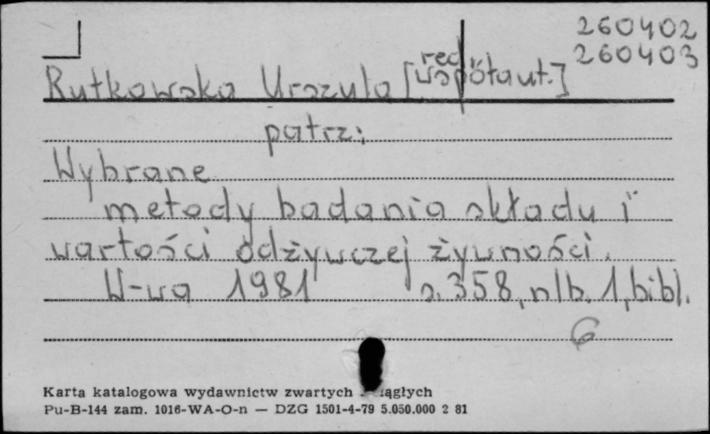 260402
260403
Rutkowska Urszula [red. współaut.]
patrz:
Wybrane
metody badania składu i
wartości odżywczej żywności.
W-wa 1981 s. 358, nlb. 1, bibl.
6
Karta katalogowa wydawnictw zwartych ciągłych
Pu-B-144 zam. 1016-WA-O-n — DZG 1501-4-79 5.050.000 2 81